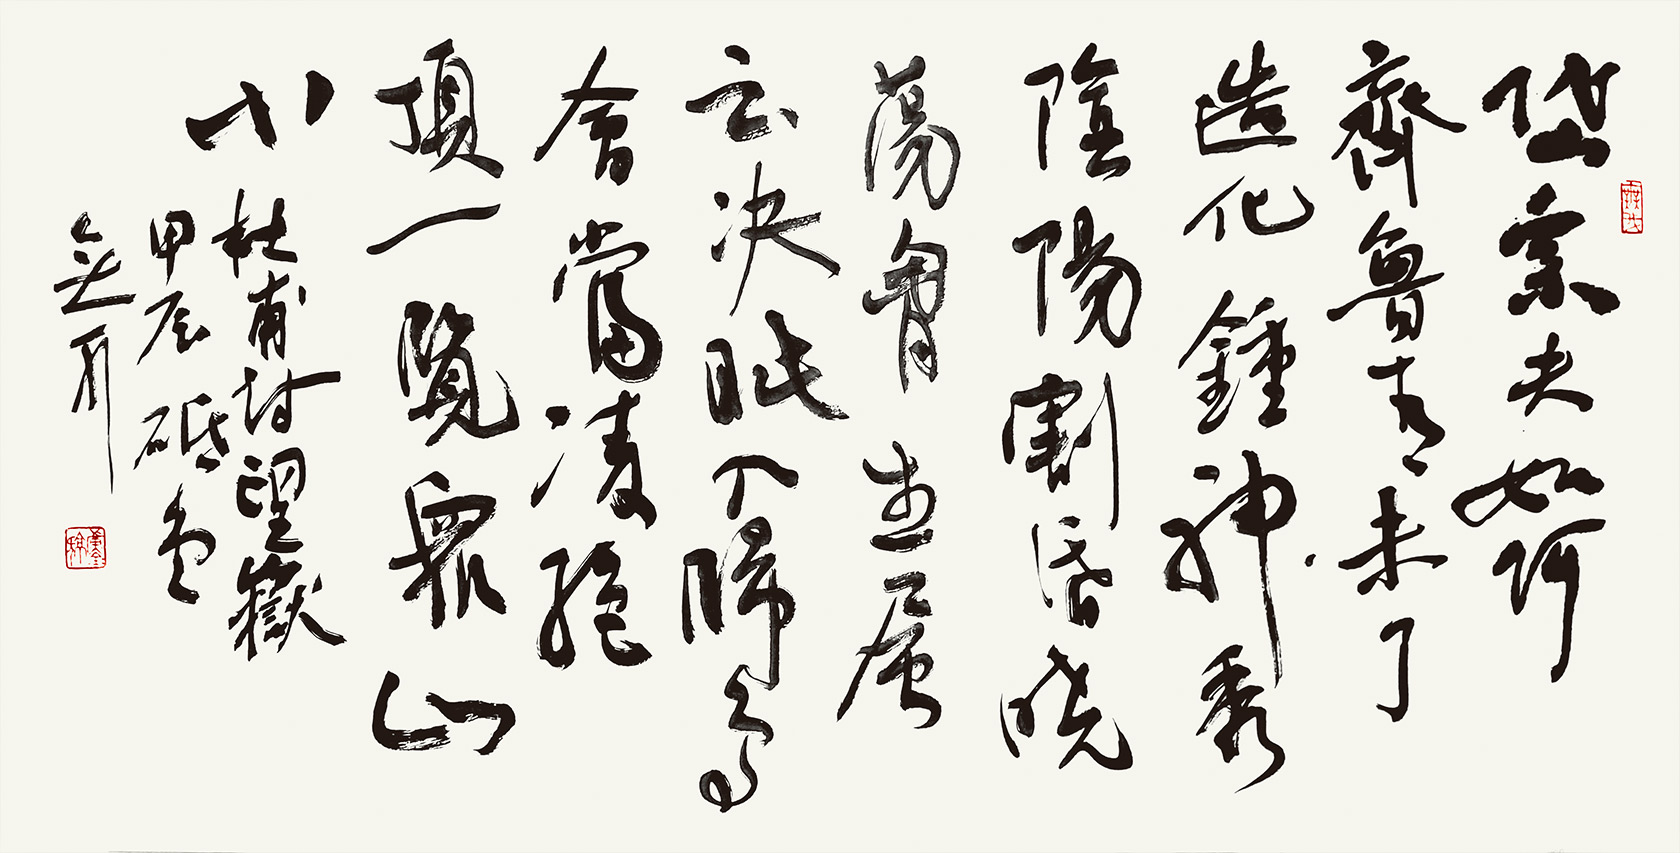 岱宗夫如何
齊魯青未了
造化鍾神秀
陰陽割昏曉
蕩胷生層
云决眦入歸鳥
會當凌絕
頂一覽眾山
小
杜甫詩望嶽
甲辰砥堂